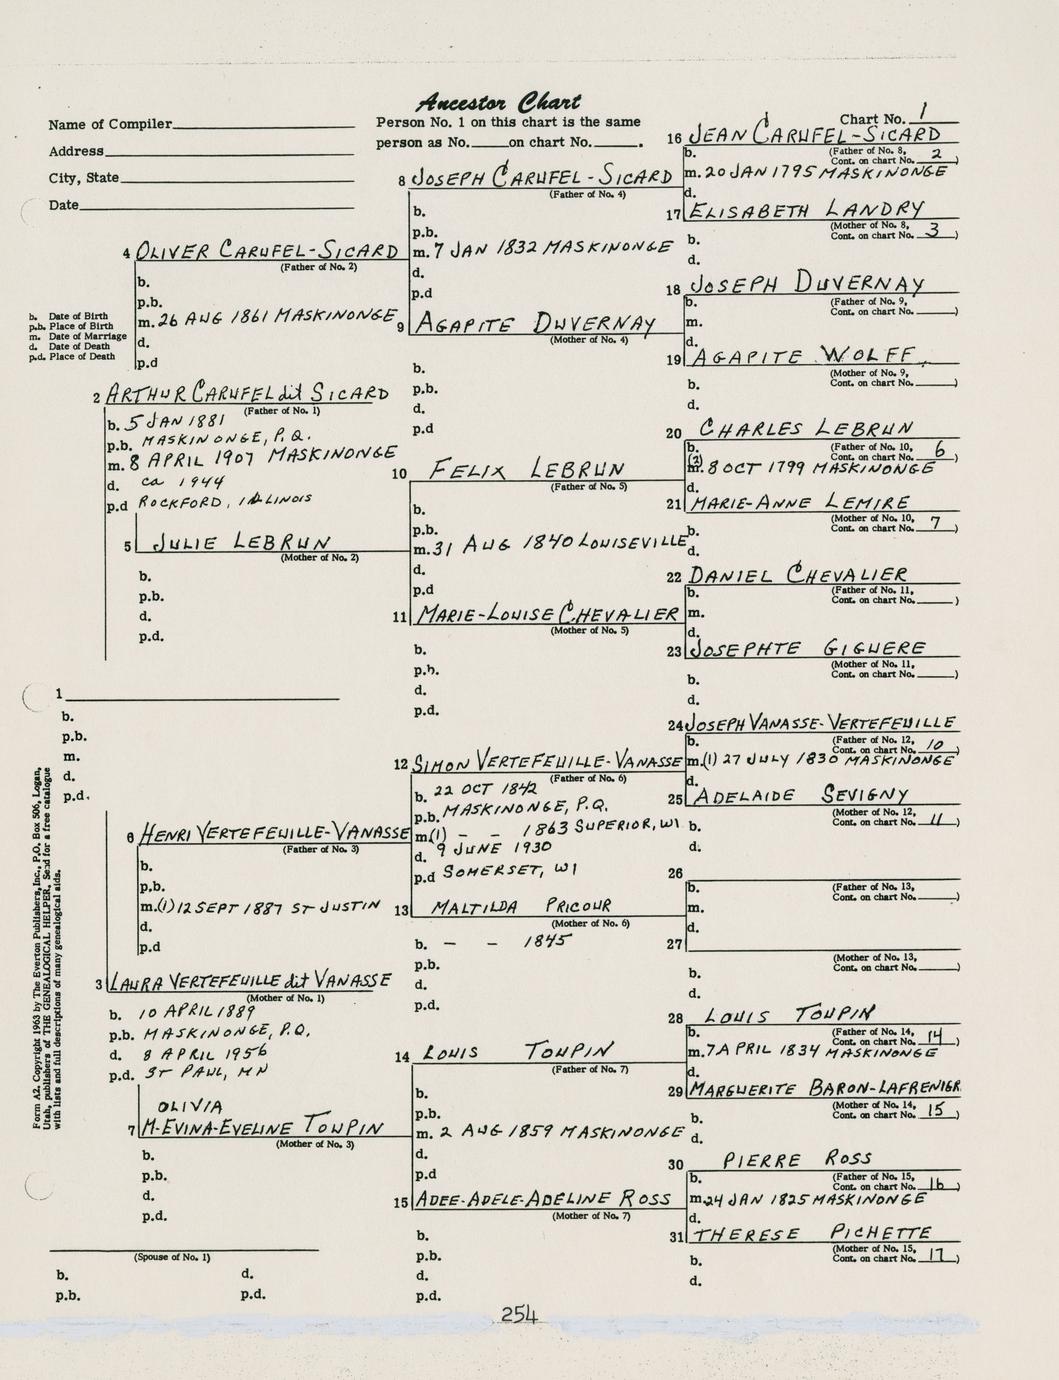 Ancestor Chart
Name of Compiler
Address
City, State
Date
Person No. 1 on this chart is the same
person as No. on chart No. .
Chart No. 1
b. Date of Birth
p.b. Place of Birth
m. Date of Marriage
d. Date of Death
p.d. Place of Death
1
b.
p.b.
m.
d.
p.d.
2 ARTHUR CARUFEL dit SICARD
(Father of No. 1)
b. 5 JAN 1881
p.b. MASKINONGE, P.Q.
m. 8 APRIL 1907 MASKINONGE
d. ca 1944
p.d ROCKFORD, ILLINOIS
3 LAURA VERTEFEUILLE dit VANASSE
(Mother of No. 1)
b. 10 APRIL 1889
p.b. MASKINONGE, P.Q.
d. 8 APRIL 1956
p.d. ST PAUL, MN
4 OLIVER CARUFEL-SICARD
(Father of No. 2)
b.
p.b.
m. 26 AUG 1861 MASKINONGE
d.
p.d
5 JULIE LEBRUN
(Mother of No. 2)
b.
p.b.
d.
p.d.
6 HENRI VERTEFEUILLE-VANASSE
(Father of No. 3)
b.
p.b.
m.(1) 12 SEPT 1887 ST JUSTIN
d.
p.d
OLIVIA
7 M-EVINA-EVELINE TOUPIN
(Mother of No. 3)
b.
p.b.
d.
p.d.
8 JOSEPH CARUFEL-SICARD
(Father of No. 4)
b.
p.b.
m. 7 JAN 1832 MASKINONGE
d.
p.d
9 AGAPITE DUVERNAY
(Mother of No. 4)
b.
p.b.
d.
p.d
10 FELIX LEBRUN
(Father of No. 5)
b.
p.b.
m. 31 AUG 1840 LOUISEVILLE
d.
p.d
11 MARIE-LOUISE CHEVALIER
(Mother of No. 5)
b.
p.b.
d.
p.d.
12 SIMON VERTEFEUILLE-VANASSE
(Father of No. 6)
b. 22 OCT 1842
p.b. MASKINONGE, P.Q.
m(1) - - 1863 SUPERIOR, WI
d. 9 JUNE 1930
p.d SOMERSET, WI
13 MALTILDA PRICOUR
(Mother of No. 6)
b. - - 1845
p.b.
d.
p.d.
14 LOUIS TOUPIN
(Father of No. 7)
b.
p.b.
m. 2 AUG 1859 MASKINONGE
d.
p.d
15 ADEE-ADELE-ADELINE ROSS
(Mother of No. 7)
b.
p.b.
d.
p.d.
16 JEAN CARUFEL-SICARD
b. (Father of No. 8,
Cont. on chart No. 2)
m. 20 JAN 1795 MASKINONGE
d.
17 ELISABETH LANDRY
(Mother of No. 8,
Cont. on chart No. 3)
b.
d.
18 JOSEPH DUVERNAY
b. (Father of No. 9,
Cont. on chart No. )
m.
d.
19 AGAPITE WOLFF
(Mother of No. 9,
Cont. on chart No. )
b.
d.
20 CHARLES LEBRUN
b. (Father of No. 10,
Cont. on chart No. 6)
(2)
m. 8 OCT 1799 MASKINONGE
d.
21 MARIE-ANNE LEMIRE
(Mother of No. 10,
Cont. on chart No. 7)
b.
d.
22 DANIEL CHEVALIER
b. (Father of No. 11,
Cont. on chart No. )
m.
d.
23 JOSEPHTE GIGUERE
(Mother of No. 11,
Cont. on chart No. )
b.
d.
24 JOSEPH VANASSE-VERTEFEUILLE
b. (Father of No. 12,
Cont. on chart No. 10)
m.(1) 27 JULY 1830 MASKINONGE
d.
25 ADELAIDE SEVIGNY
(Mother of No. 12,
Cont. on chart No. 11)
b.
d.
26
b. (Father of No. 13,
Cont. on chart No. )
m.
d.
27
(Mother of No. 13,
Cont. on chart No. )
b.
d.
28 LOUIS TOUPIN
b. (Father of No. 14,
Cont. on chart No. 14)
m. 7 APRIL 1834 MASKINONGE
d.
29 MARGUERITE BARON-LAFRENIER
(Mother of No. 14,
Cont. on chart No. 15)
b.
d.
30 PIERRE ROSS
b. (Father of No. 15,
Cont. on chart No. 16)
m. 24 JAN 1825 MASKINONGE
d.
31 THERESE PICHETTE
(Mother of No. 15,
Cont. on chart No. 17)
b.
d.
(Spouse of No. 1)
b. d.
p.b. p.d.
Form A2. Copyright 1963 by The Everton Publishers, Inc., P.O. Box 506, Logan,
Utah, publishers of THE GENEALOGICAL HELPER. Send for a free catalogue
with lists and full descriptions of many genealogical aids.
254